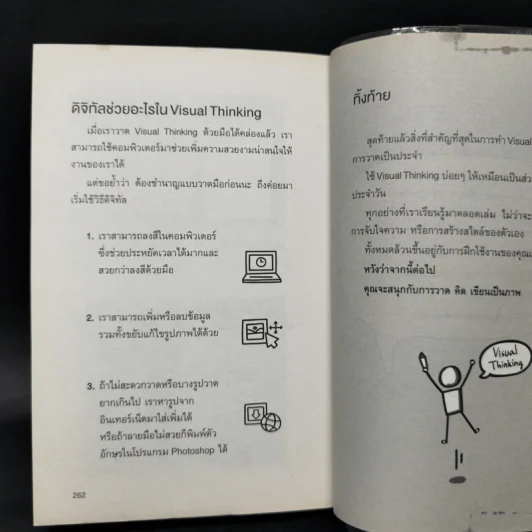 ดิจิทัลช่วยอะไรใน Visual Thinking
เมื่อเราวาด Visual Thinking ด้วยมือได้คล่องแล้ว เรา
สามารถใช้คอมพิวเตอร์มาช่วยเพิ่มความสวยงามน่าสนใจให้
งานของเราได้
แต่ขอย้ำว่า ต้องชำนาญแบบวาดมือก่อนนะ ถึงค่อยมา
เริ่มใช้วิธีดิจิทัล
1. เราสามารถลงสีในคอมพิวเตอร์
ซึ่งช่วยประหยัดเวลาได้มากและ
สวยกว่าลงสีด้วยมือ
2. เราสามารถเพิ่มหรือลบข้อมูล
รวมทั้งขยับแก้ไขรูปภาพได้ด้วย
3. ถ้าไม่สะดวกวาดหรือบางรูปวาด
ยากเกินไป เราหารูปจาก
อินเทอร์เน็ตมาใส่เพิ่มได้
หรือถ้าลายมือไม่สวยก็พิมพ์ตัว
อักษรในโปรแกรม Photoshop ได้
262
ทิ้งท้าย
สุดท้ายแล้วสิ่งที่สำคัญที่สุดในการทำ Visual
การวาดเป็นประจำ
ใช้ Visual Thinking บ่อยๆ ให้เหมือนเป็นส่ว
ประจำวัน
ทุกอย่างที่เราเรียนรู้มาตลอดเล่ม ไม่ว่าจะ
การจับใจความ หรือการสร้างสไตล์ของตัวเอง
ทั้งหมดล้วนขึ้นอยู่กับการฝึกใช้งานของคุณ
หวังว่าจากนี้ต่อไป
คุณจะสนุกกับการวาด คิด เขียนเป็นภาพ
Visual
Thinking